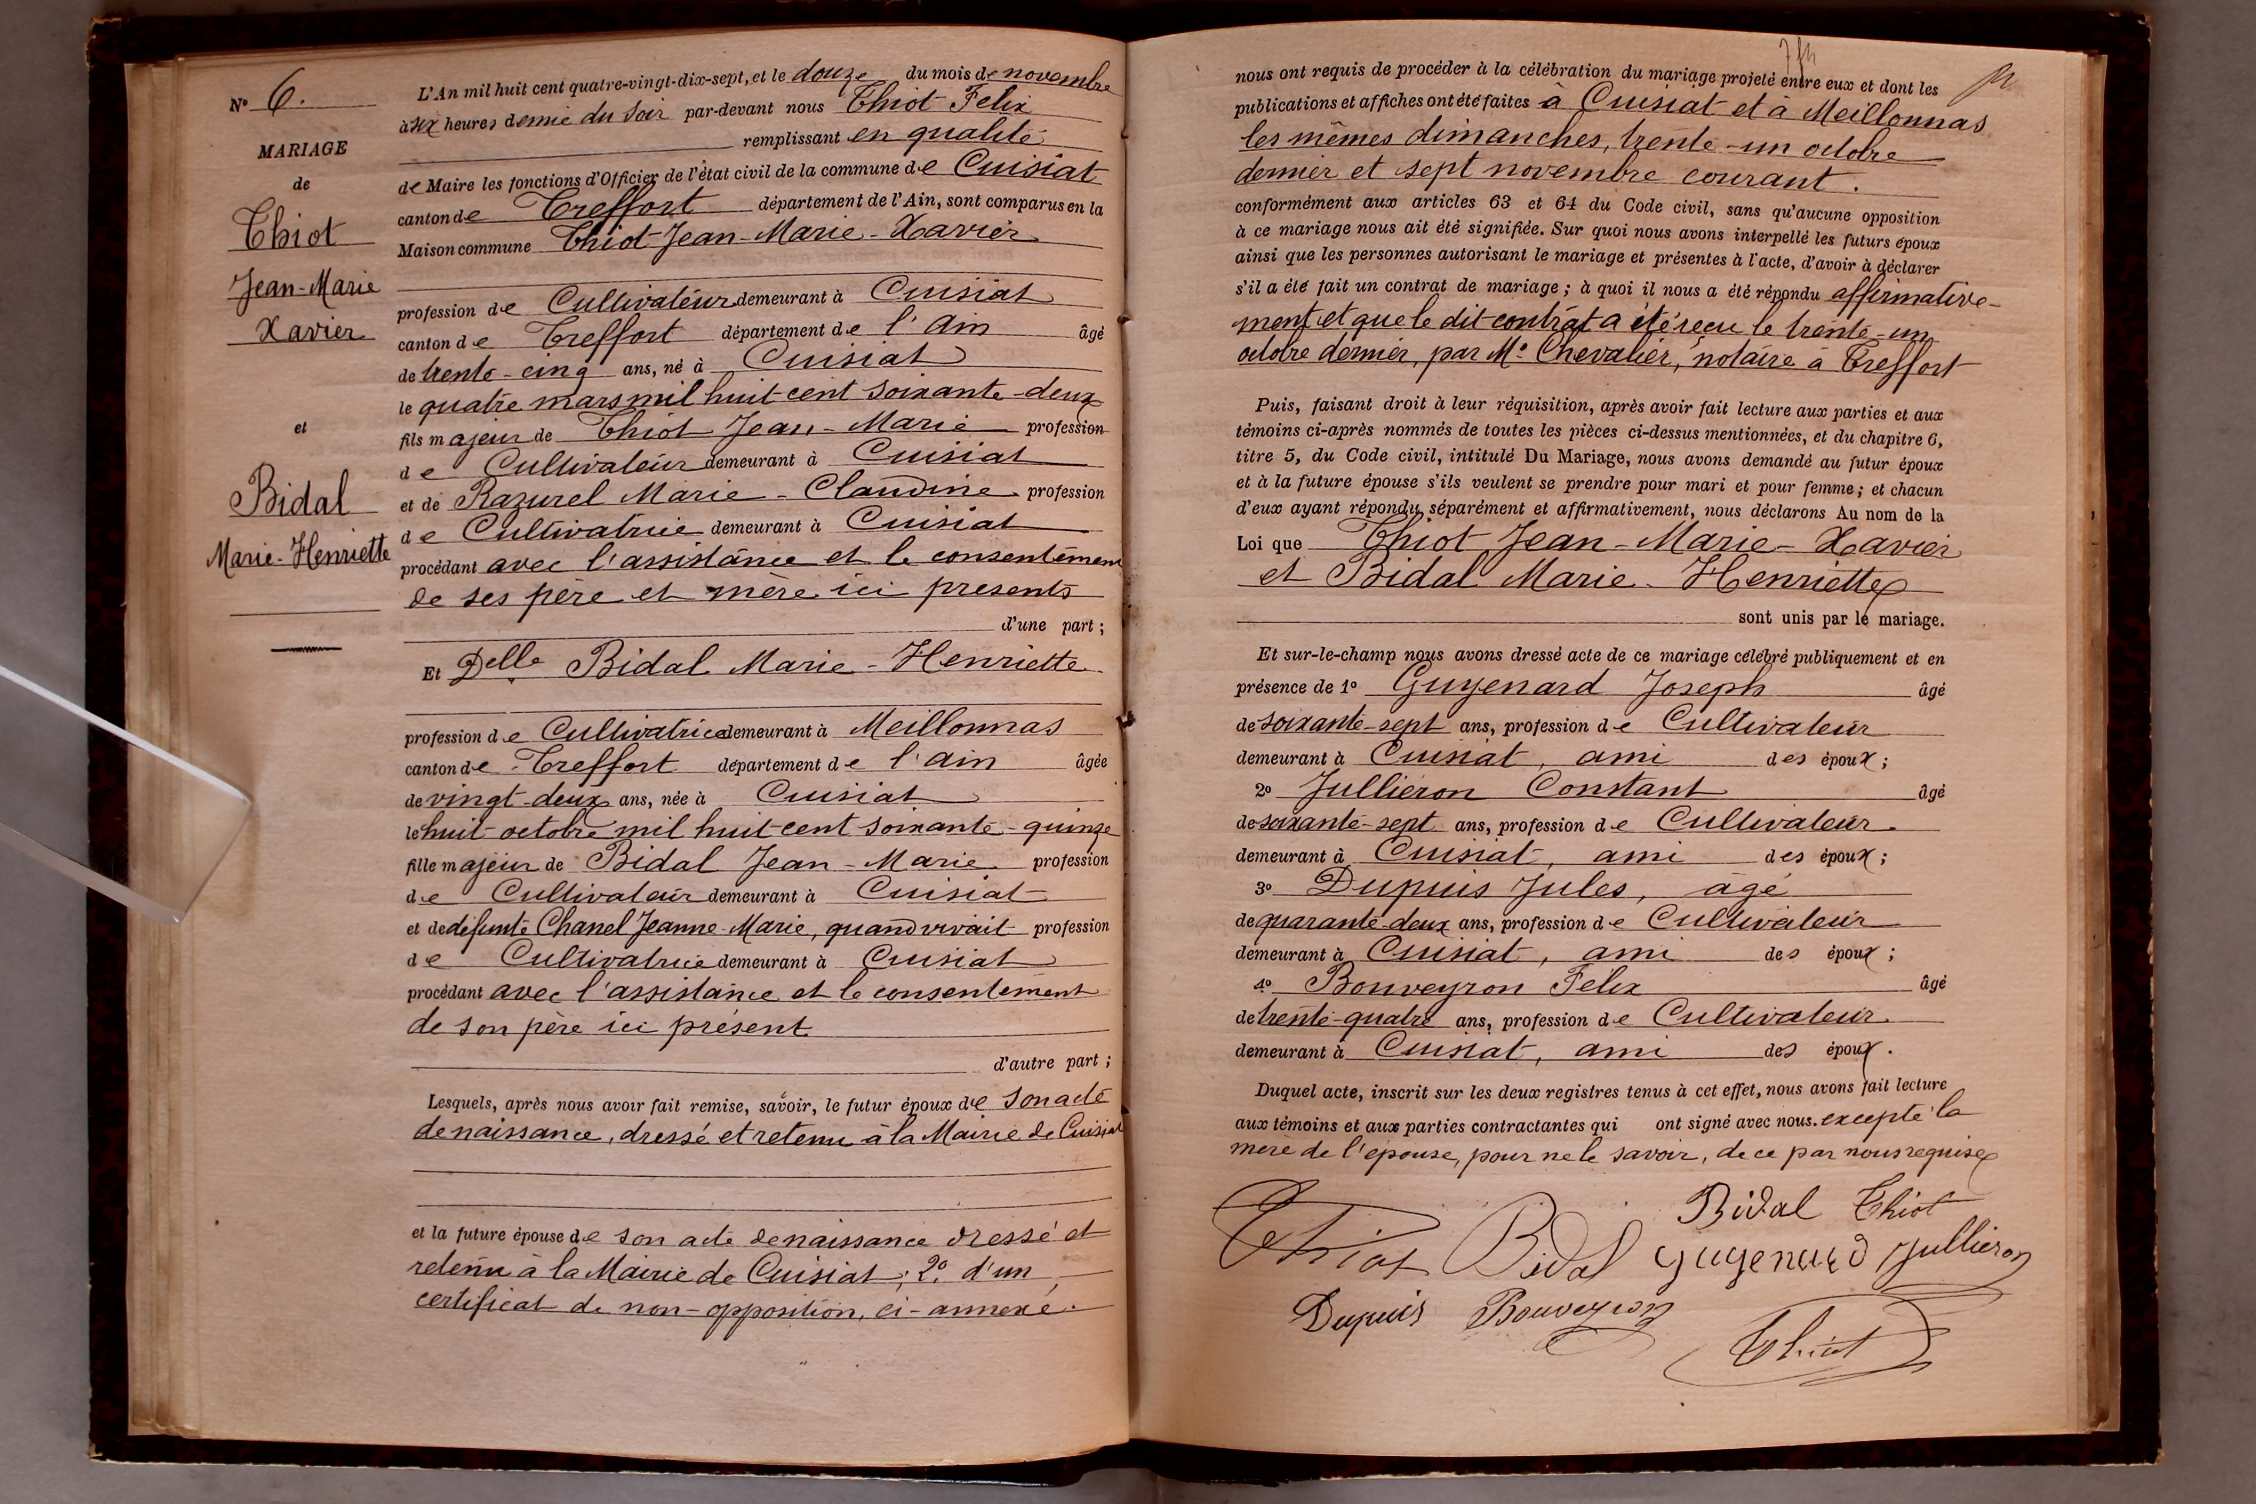 Nº 6.
MARIAGE
de
Thiot
Jean-Marie
Xavier
et
Bidal
Marie-Henriette
L'An mil huit cent quatre-vingt-dix-sept, et le douze du mois de novembre
à six heures demie du soir par-devant nous Thiot Felix
remplissant en qualité
de Maire les fonctions d'Officier de l'état civil de la commune de Cuisiat
canton de Treffort département de l'Ain, sont comparus en la
Maison commune Thiot Jean-Marie-Xavier
profession de Cultivateur demeurant à Cuisiat
canton de Treffort département de l'Ain âgé
de trente-cinq ans, né à Cuisiat
le quatre mars mil huit cent soixante-deux
fils majeur de Thiot Jean-Marie profession
de Cultivateur demeurant à Cuisiat
et de Razurel Marie-Claudine profession
de Cultivatrice demeurant à Cuisiat
procédant avec l'assistance et le consentement
de ses père et mère ici présents
d'une part ;
Et Delle Bidal Marie-Henriette
profession de Cultivatrice demeurant à Meillonnas
canton de Treffort département de l'Ain âgée
de vingt-deux ans, née à Cuisiat
le huit octobre mil huit cent soixante-quinze
fille majeur de Bidal Jean-Marie profession
de Cultivateur demeurant à Cuisiat
et de défunte Chanel Jeanne-Marie, quand vivait profession
de Cultivatrice demeurant à Cuisiat
procédant avec l'assistance et le consentement
de son père ici présent
d'autre part ;
Lesquels, après nous avoir fait remise, savoir, le futur époux de son acte
de naissance, dressé et retenu à la Mairie de Cuisiat
et la future épouse de son acte de naissance dressé et
retenu à la Mairie de Cuisiat ; 2º d'un
certificat de non-opposition, ci-annexé.
nous ont requis de procéder à la célébration du mariage projeté entre eux et dont les
publications et affiches ont été faites à Cuisiat et à Meillonnas
les mêmes dimanches, trente-un octobre
dernier et sept novembre courant.
conformément aux articles 63 et 64 du Code civil, sans qu'aucune opposition
à ce mariage nous ait été signifiée. Sur quoi nous avons interpellé les futurs époux
ainsi que les personnes autorisant le mariage et présentes à l'acte, d'avoir à déclarer
s'il a été fait un contrat de mariage ; à quoi il nous a été répondu affirmative-
ment et que le dit contrat a été reçu le trente-un
octobre dernier, par Me Chevalier, notaire à Treffort
Puis, faisant droit à leur réquisition, après avoir fait lecture aux parties et aux
témoins ci-après nommés de toutes les pièces ci-dessus mentionnées, et du chapitre 6,
titre 5, du Code civil, intitulé Du Mariage, nous avons demandé au futur époux
et à la future épouse s'ils veulent se prendre pour mari et pour femme ; et chacun
d'eux ayant répondu séparément et affirmativement, nous déclarons Au nom de la
Loi que Thiot Jean-Marie-Xavier
et Bidal Marie-Henriette
sont unis par le mariage.
Et sur-le-champ nous avons dressé acte de ce mariage célébré publiquement et en
présence de 1º Guyenard Joseph âgé
de soixante-sept ans, profession de Cultivateur
demeurant à Cuisiat, ami des époux ;
2º Jullieron Constant âgé
de soixante-sept ans, profession de Cultivateur.
demeurant à Cuisiat, ami des époux ;
3º Dupuis Jules, âgé
de quarante-deux ans, profession de Cultivateur
demeurant à Cuisiat, ami des époux ;
4º Bouveyron Felix âgé
de trente-quatre ans, profession de Cultivateur.
demeurant à Cuisiat, ami des époux.
Duquel acte, inscrit sur les deux registres tenus à cet effet, nous avons fait lecture
aux témoins et aux parties contractantes qui ont signé avec nous. excepté la
mère de l'épouse, pour ne le savoir, de ce par nous requise
Bidal Thiot
Thiot Bidal Guyenard Jullieron
Dupuis Bouveyron
Thiot